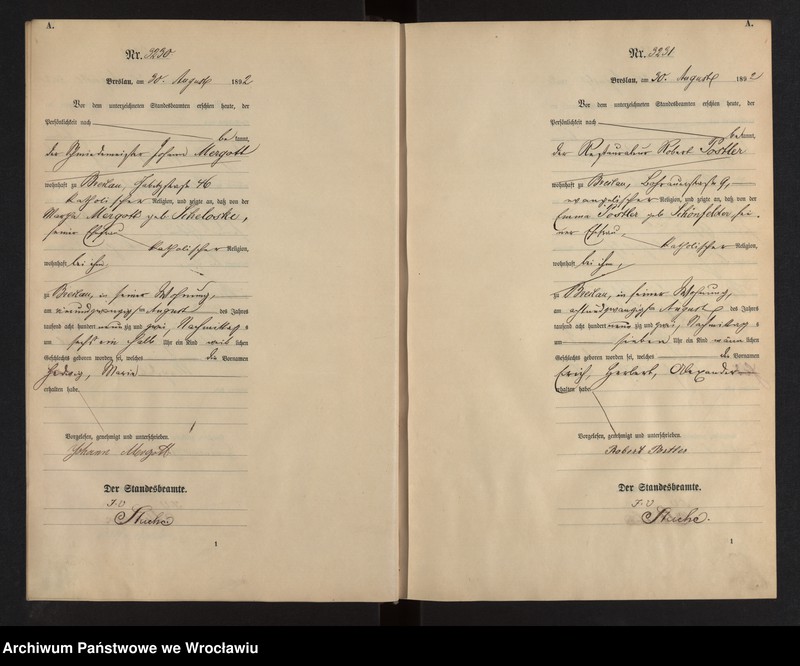 A.
Nr. 3230
Breslau, am 30. August 1892
Vor dem unterzeichneten Standesbeamten erschien heute, der
Persönlichkeit nach
bekannt,
der Schmiedemeister Johann Mergott
wohnhaft zu Breslau, 46
katholischer Religion, und zeigte an, daß von der
Mergott geb
seiner Ehefrau
katholischer Religion,
wohnhaft bei ihm,
zu Breslau, in seiner Wohnung,
am neunundzwanzigsten August des Jahres
tausend acht hundert neunzig und zwei, Nachmittags
um sechs ein halb Uhr ein Kind weiblichen
Geschlechts geboren worden sei, welches die Vornamen
Hedwig, Maria
erhalten habe.
Vorgelesen, genehmigt und unterschrieben.
Johann Mergott
Der Standesbeamte.
I. V
1
A.
Nr. 3231
Breslau, am 30. August 1892
Vor dem unterzeichneten Standesbeamten erschien heute, der
Persönlichkeit nach
bekannt,
der Restaurateur Robert Postler
wohnhaft zu Breslau, Bohrauerstraße 9,
evangelischer Religion, und zeigte an, daß von der
Emma Postler geb Schönfelder, sei-
ner Ehefrau
katholischer Religion,
wohnhaft bei ihm,
zu Breslau, in seiner Wohnung,
am achtundzwanzigsten August des Jahres
tausend acht hundert neunzig und zwei, Nachmittags
um sieben Uhr ein Kind männlichen
Geschlechts geboren worden sei, welches die Vornamen
Erich, Herbert, Alexander
erhalten habe.
Vorgelesen, genehmigt und unterschrieben.
Robert Postler
Der Standesbeamte.
I. V
1
Archiwum Państwowe we Wrocławiu